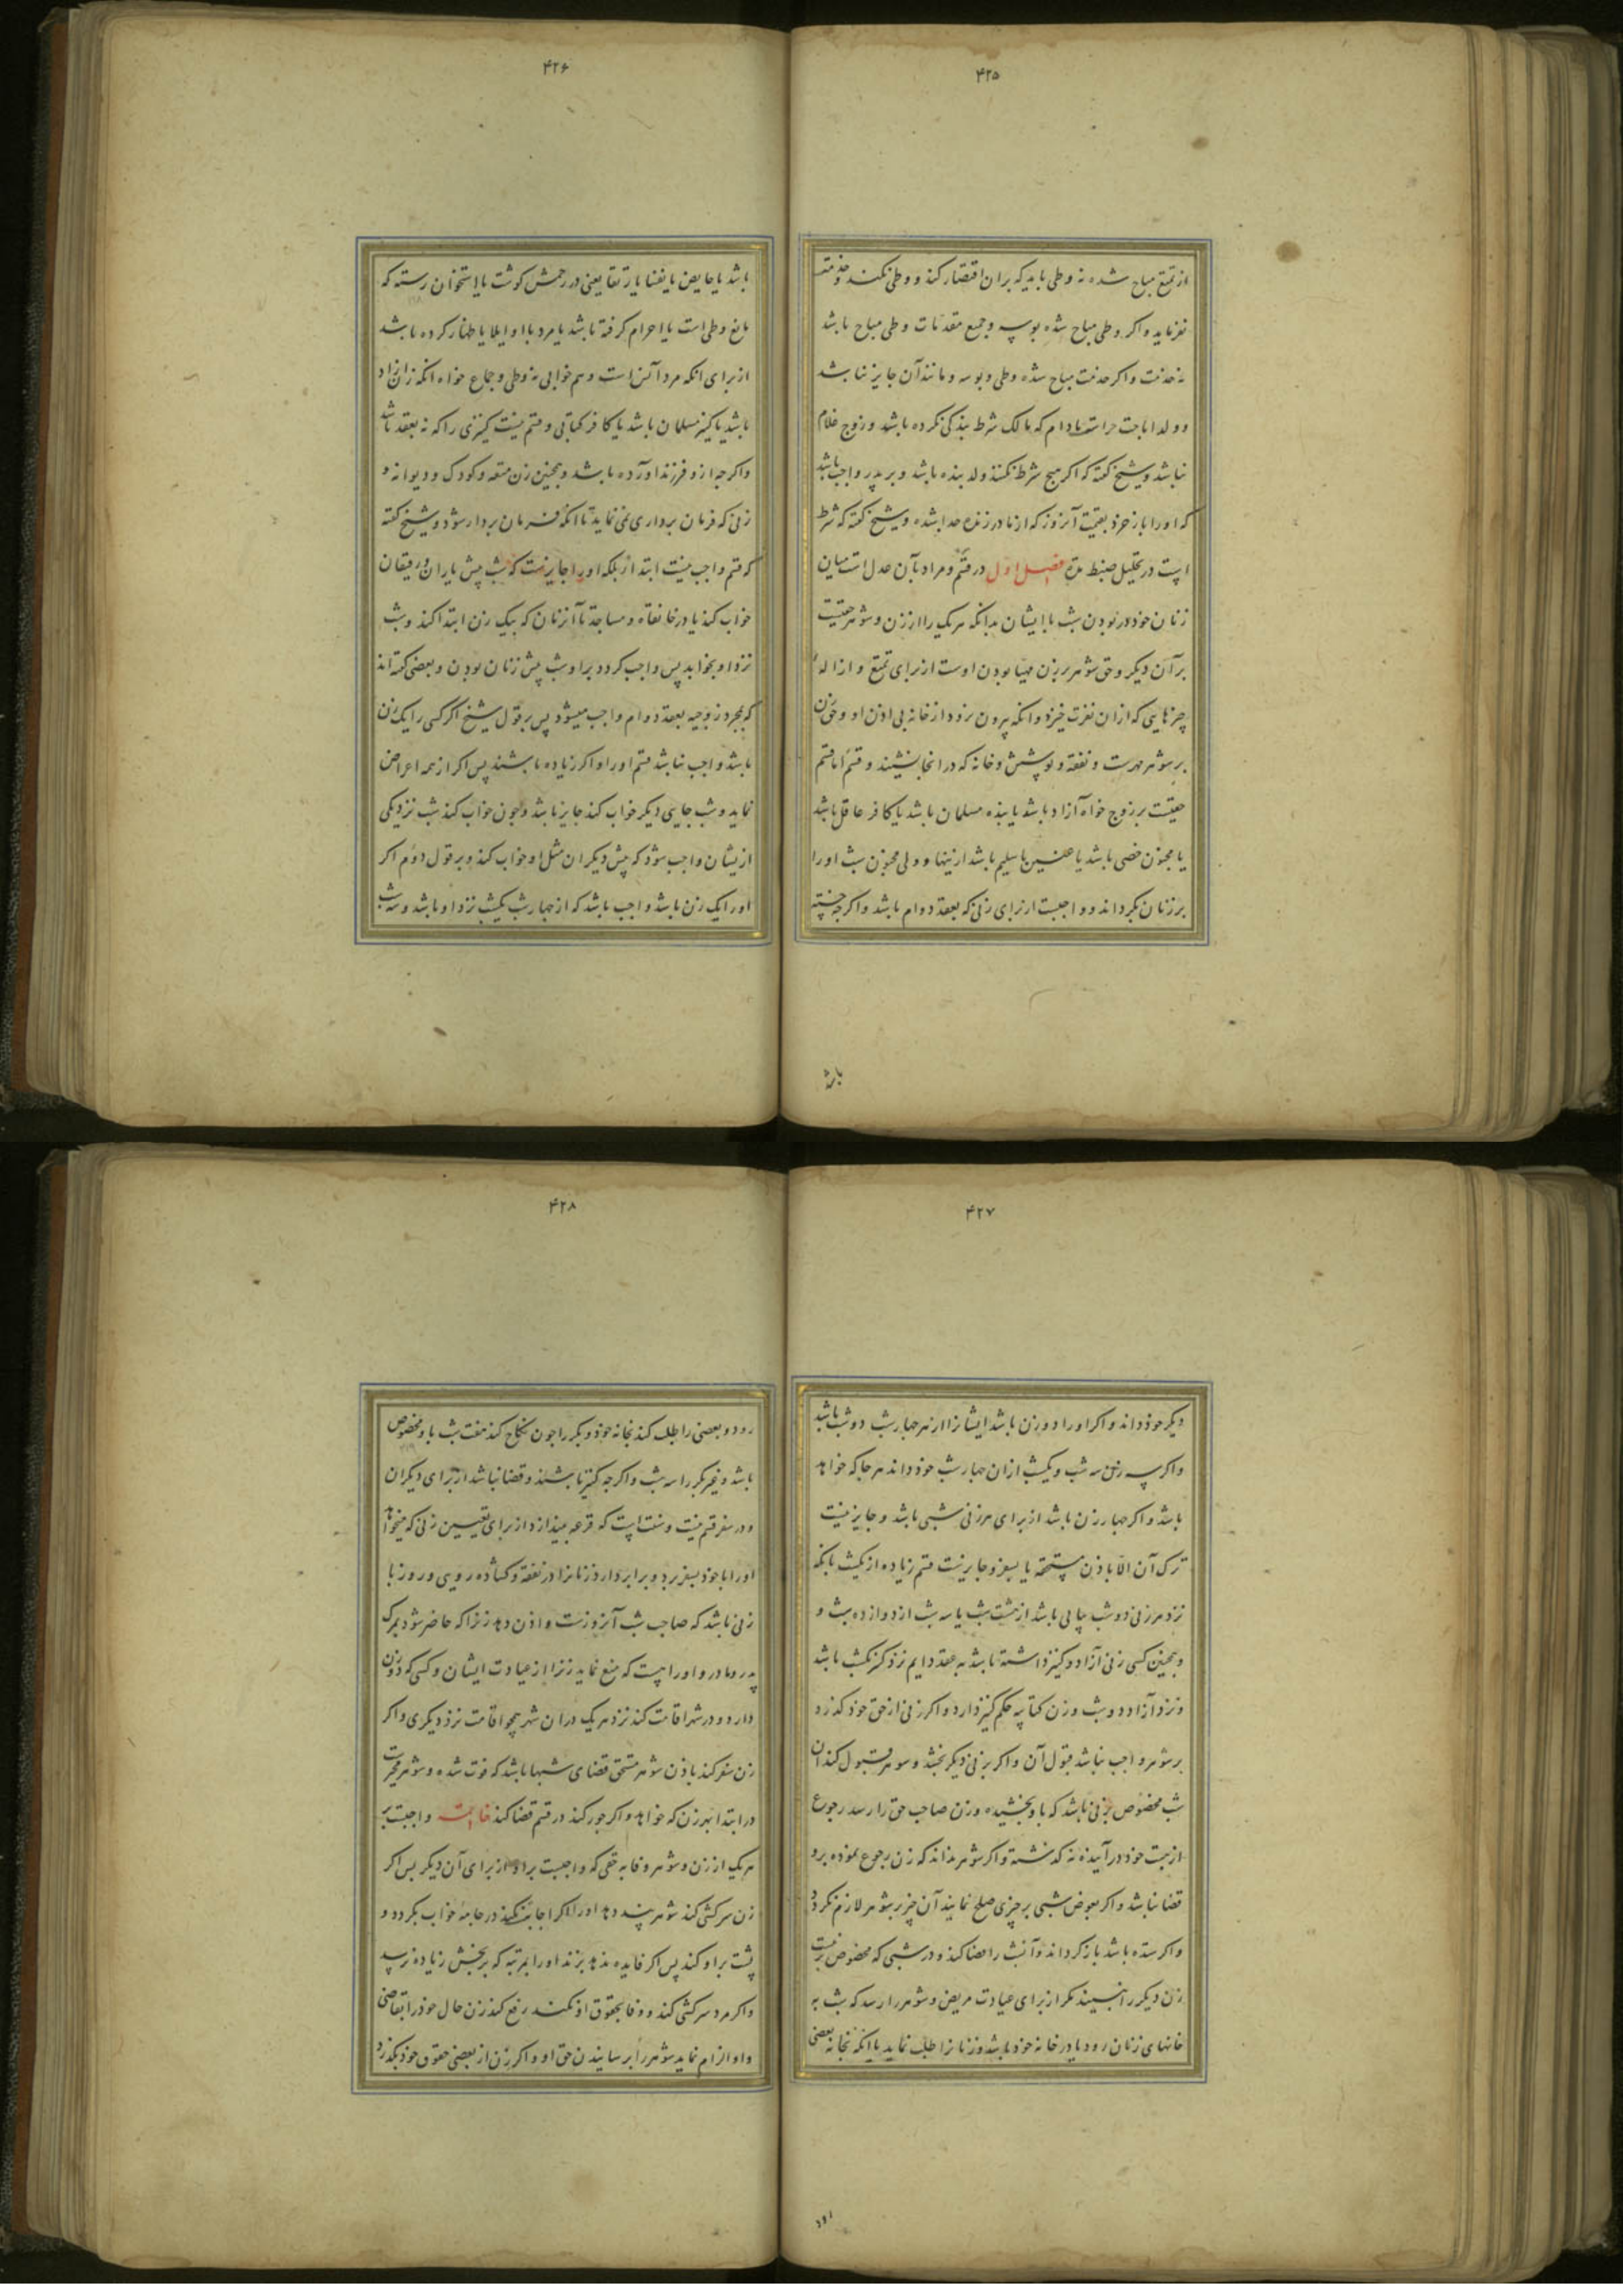 ۴۲۵
از تمتع مباح شده نه وطی باید که بران اقتصار کند و وطی نکند و خدمت
نفرماید و اکر وطی مباح شده بوسه و جمیع مقدمات وطی مباح باشد
نه خدمت و اکر خدمت مباح شده وطی و بوسه و مانند آن جایز نباشد
و ولد اباحت حرست مادام که مالک شرط بندکی نکرده باشد و زوج غلام
نباشد و شیخ کفته که اکر هیچ شرط نکنند ولد بنده باشد و بر پدر واجب باشد
که اورا باز خرد بقیمت آنروز که از مادر زنده جدا شده و شیخ کفته که شرط
است در تحلیل ضبط مدت فصل اول در قسم و مراد بآن عدل است میان
زنان خود در بودن شب با ایشان بدانکه هر یک را از زن و شوهر حقیست
بر آن دیکر و حق شوهر بر زن مهیا بودن اوست از برای تمتع و ازاله
چیزهایی که ازان نفرت خیزد و انکه بیرون نرود از خانه بی اذن او و حق زن
بر شوهر مهرست و نفقه و پوشش و خانه که در انجا نشیند و قسم اما قسم
حقیست بر زوج خواه آزاد باشد یا بنده مسلمان باشد یا کافر عاقل باشد
یا مجنون خصی باشد یا عنین یا سلیم باشد ازینها و ولی مجنون شب اورا
بر زنان بکرداند و واجبست از برای زنی که بعقد دوام باشد و اکرچه خسته
باشد
۴۲۶
باشد یا حایض یا نفسا یا رتقا یعنی در رحمش کوشت یا استخوان رسته که
مانع وطی است یا احرام کرفته باشد یا مرد با او ایلا یا ظهار کرده باشد
از برای انکه مراد آنس است و هم خوابی نه وطی و جماع خواه انکه زن آزاد
باشد یا کنیز مسلمان باشد یا کافر کتابی و قسم نیست کنیزی را که نه بعقد باشد
و اکرچه ازو فرزند آورده باشد و همچنین زن متعه و کودک و دیوانه و
زنی که فرمان برداری نمی نماید تا انکه فرمان بردار شود و شیخ کفته
که قسم واجب نیست ابتداءً بلکه اورا جایزست که شب پیش یاران و رفیقان
خواب کند یا در خانقاه و مساجد تا آنزمان که بیک زن ابتدا کند و شب
نزد او بخوابد پس واجب کردد براو شب پیش زنان بودن و بعضی کفته اند
که بمجرد زوجیه بعقد دوام واجب میشود پس بر قول شیخ اکر کسی را یک زن
باشد واجب نباشد قسم اورا و اکر زیاده باشند پس اکر از همه اعراض
نماید و شب جایی دیکر خواب کند جایز باشد و چون خواب کند شب نزد یکی
ازیشان واجب شود که پیش دیکران مثل او خواب کند و بر قول دوم اکر
اورا یک زن باشد واجب باشد که از چهار شب یکشب نزد او باشد و سه شب
۴۲۷
دیکر خود داند و اکر اورا دو زن باشد ایشانرا از هر چهار شب دو شب باشد
و اکر سه زن سه شب و یکشب ازان چهار شب خود داند هر جا که خواهد
باشد و اکر چهار زن باشد از برای هر زنی شبی باشد و جایز نیست
ترک آن الا باذن مستحقه یا بسفر و جایزست قسم زیاده از یکشب بانکه
نزد هر زنی دو شب پیاپی باشد از هشت شب یا سه شب از دوازده شب و
و همچنین کسی زنی آزاد و کنیز داشته باشد به عقد دایم نزد کنیز یکشب باشد
و نزد آزاد دو شب و زن کتابیه حکم کنیز دارد و اکر زنی از حق خود کذرد
بر شوهر واجب نباشد قبول آن و اکر بزنی دیکر بخشد و شوهر قبول کند آن
شب مخصوص بزنی باشد که باو بخشیده و زن صاحب حق را رسد رجوع
از هبت خود در آینده نه کذشته و اکر شوهر نداند که زن رجوع نموده برو
قضا نباشد و اکر بعوض شبی بر چیزی صلح نمایند آن چیز بر شوهر لازم نکردد
و اکر ستده باشد باز کرداند و آنشب را قضا کند و در شبی که مخصوص زنیست
زن دیکر را نبیند مکر از برای عیادت مریض و شوهر را رسد که شب به
خانهای زنان رود یا در خانه خود باشد و زنانرا طلب نماید یا انکه بخانه بعضی
رود
۴۲۸
رود و بعضی را طلب کند بخانه خود و بکر را چون نکاح کند هفت شب باو مخصوص
باشد و غیر بکر را سه شب و اکرچه کنیز باشند و قضا نباشد از برای دیکران
و در سفر قسم نیست و سنت است که قرعه بیندازد از برای تعیین زنی که میخواهد
اورا باخود بسفر برد و برابر دارد زنانرا در نفقه و کشاده رویی و روز با
زنی باشد که صاحب شب آنروزست و اذن دهد زنرا که حاضر شود بمرک
پدر و مادر و اوراست که منع نماید زنرا از عیادت ایشان و کسی که دو زن
دارد و در شهر اقامت کند نزد هر یک دران شهر همچو اقامت نزد دیکری و اکر
زن سفر کند باذن شوهر مستحق قضای شبها باشد که فوت شده و شوهر مخیرست
در ابتدا بهر زن که خواهد و اکر جور کند در قسم قضا کند خاتمه واجبست بر
هر یک از زن و شوهر وفا به حقی که واجبست براو از برای آن دیکر پس اکر
زن سرکشی کند شوهر پند دهد اورا اکر اجابت نکند در جامه خواب بکردد و
پشت براو کند پس اکر فایده ندهد بزند اورا بمرتبه که بر بخشش زیاده نرسد
و اکر مرد سرکشی کند و وفا بحقوق او نکند رفع کند زن حال خودرا بقاضی
و او الزام نماید شوهر را برسانیدن حق او و اکر زن از بعضی حقوق خود بکذرد